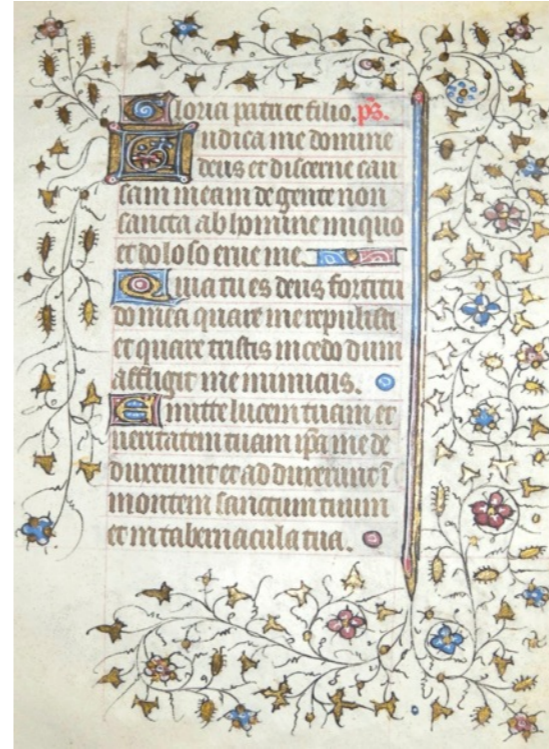 Gloria patri et filio. ps.
Iudica me domine
deus et discerne cau
sam meam de gente non
sancta ab homine iniquo
et doloso erue me.
Quia tu es deus fortitu
do mea quare me repulisti
et quare tristis incedo dum
affligit me inimicus.
Emitte lucem tuam et
ueritatem tuam ip̄a me de
duxerunt et adduxerunt ī
montem sanctum tuum
et in tabernacula tua.